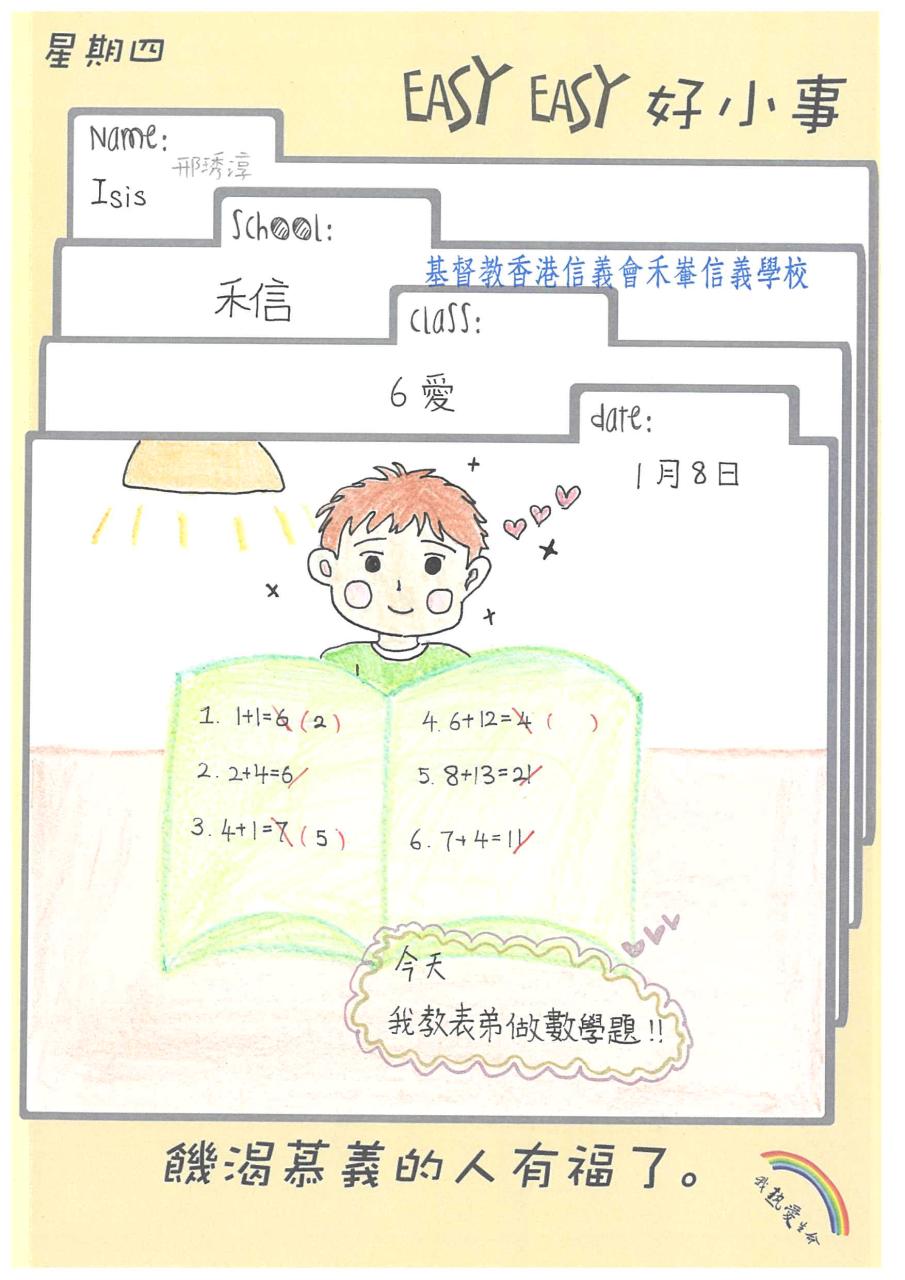 星期四
EASY EASY 好小事
Name:
邢琇淳
Isis
School:
基督教香港信義會禾輋信義學校
禾信
Class:
6 愛
date:
1月8日
1. 1+1=6 (2)
2. 2+4=6
3. 4+1=7 (5)
4. 6+12=4 ( )
5. 8+13=21
6. 7+4=11
今天
我教表弟做數學題!!
饑渴慕義的人有福了。
我熱愛生命